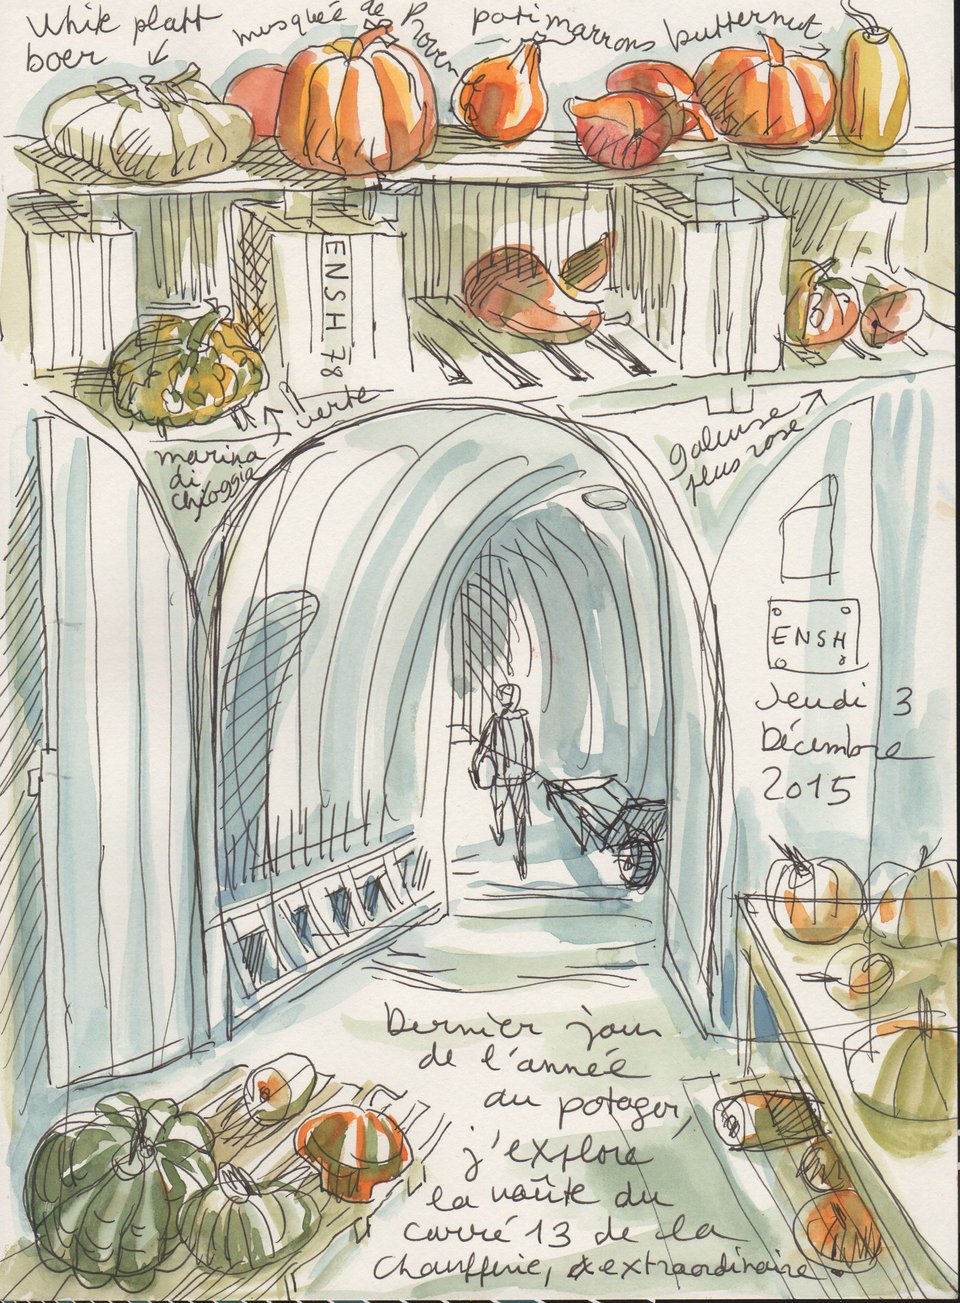 White platt
boer
musquée de
Proven
potimarrons
butternut
ENSH 78
marina
di
chioggia
verte
galeuse
plus rose
ENSH
Jeudi 3
Décembre
2015
Dernier jour
de l'année
au potager,
j'explore
la voûte du
carré 13 de la
Chaufferie, extraordinaire.